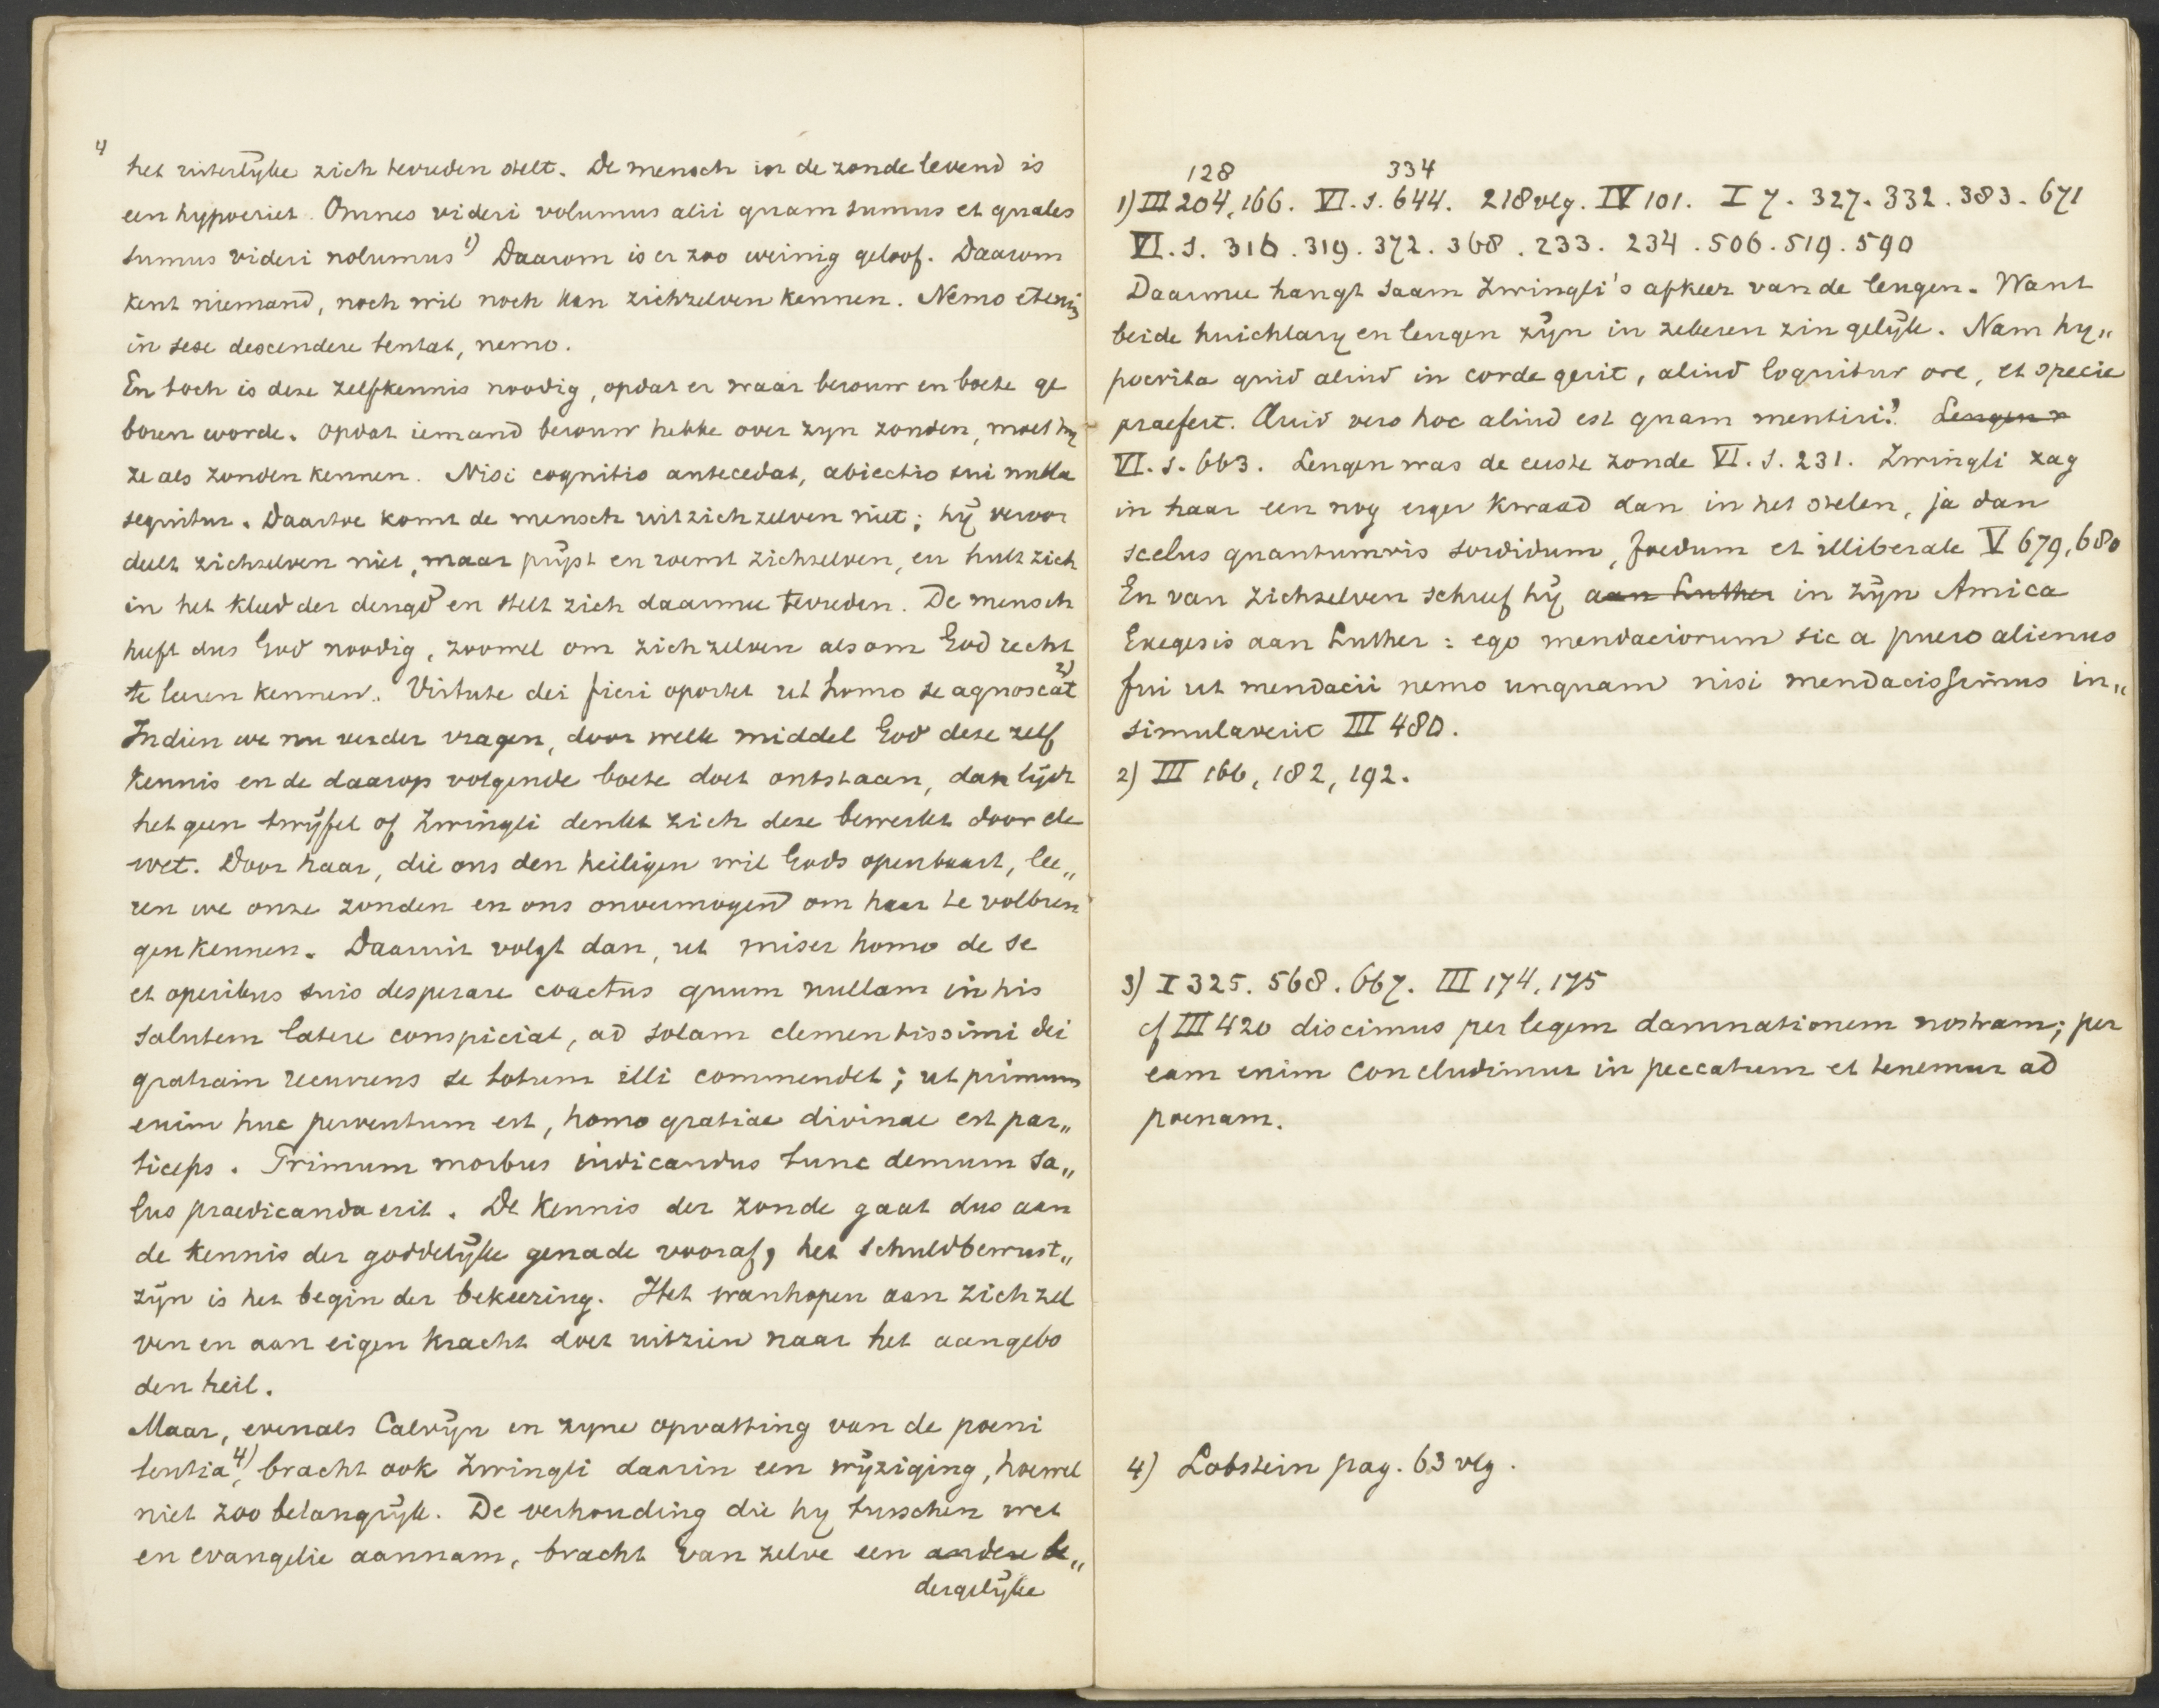 4
het uiterlijke zich tevreden stelt. De mensch in de zonde levend is
een hypocriet. Omnes videri volumus alii quam sumus et quales
sumus videri nolumus 1) Daarom is er zoo weinig geloof. Daarom
kent niemand, noch wil noch kan zichzelven kennen. Nemo etenim
in sese descendere tentat, nemo.
En toch is deze zelfkennis noodig, opdat er waar berouw en boete ge
boren worde. Opdat iemand berouw hebbe over zyn zonden, moet hy
ze als zonden kennen. Nisi cognitio antecedat, abiectio sui nulla
sequitur. Daartoe komt de mensch uit zichzelven niet; hij veroor
deelt zichzelven niet, maar prijst en roemt zichzelven, en hult zich
in het kleed der deugd en stelt zich daarmee tevreden. De mensch
heeft dus God noodig, zoowel om zichzelven als om God recht
te leeren kennen. Virtute dei fieri oportet ut homo se agnoscat 2)
Indien we nu verder vragen, door welk middel God deze zelf
kennis en de daarop volgende boete doet ontstaan, dan lijdt
het geen twijfel of Zwingli denkt zich deze bewerkt door de
wet. Door haar, die ons den heiligen wil Gods openbaart, lee„
ren we onze zonden en ons onvermogen om haar te volbren
gen kennen. Daaruit volgt dan, ut miser homo de se
et operibus suis desperare coactus quum nullam in his
salutem latere conspiciat, ad solam clementissimi dei
gratiam recurrens se totum illi commendet; ut primum
enim huc perventum est, homo gratiae divinae est par„
ticeps. Primum morbus indicandus tunc demum sa„
lus praedicanda erit. De kennis der zonde gaat dus aan
de kennis der goddelijke genade vooraf, het schuldbewust„
zijn is het begin der bekeering. Het wanhopen aan zichzel
ven en aan eigen kracht doet uitzien naar het aangebo
den heil.
Maar, evenals Calvijn in zyne opvatting van de poeni
tentia 4), bracht ook Zwingli daarin een wijziging, hoewel
niet zoo belangrijk. De verhouding die hy tusschen wet
en evangelie aannam, bracht van zelve een andere be„
dergelijke
128 334
1) III 204, 166. VI. 1. 644. 218 vlg. IV 101. I 7. 327. 332. 383. 671
VI. 1. 316. 319. 372. 368. 233. 234. 506. 519. 590
Daarmee hangt saam Zwingli's afkeer van de leugen. Want
beide huichlary en leugen zijn in zekeren zin gelijk. Nam hy„
pocrita quid aliud in corde gerit, aliud loquitur ore, et specie
praefert. Quid vero hoc aliud est quam mentiri? Leugen
VI. 1. 663. Leugen was de eerste zonde VI. 1. 231. Zwingli zag
in haar een nog erger kwaad dan in het stelen, ja dan
scelus quantumvis sordidum, foedum et illiberale V 679, 680
En van zichzelven schreef hij aan Luther in zijn Amica
Exegesis aan Luther: ego mendaciorum sic a puero alienus
fui ut mendacii nemo unquam nisi mendacissimus in„
simulaverit III 480.
2) III 166, 182, 192.
3) I 325. 568. 667. III 174, 175
cf III 420 discimus per legem damnationem nostram; per
eam enim concludimur in peccatum et tenemur ad
poenam.
4) Lobstein pag. 63 vlg.